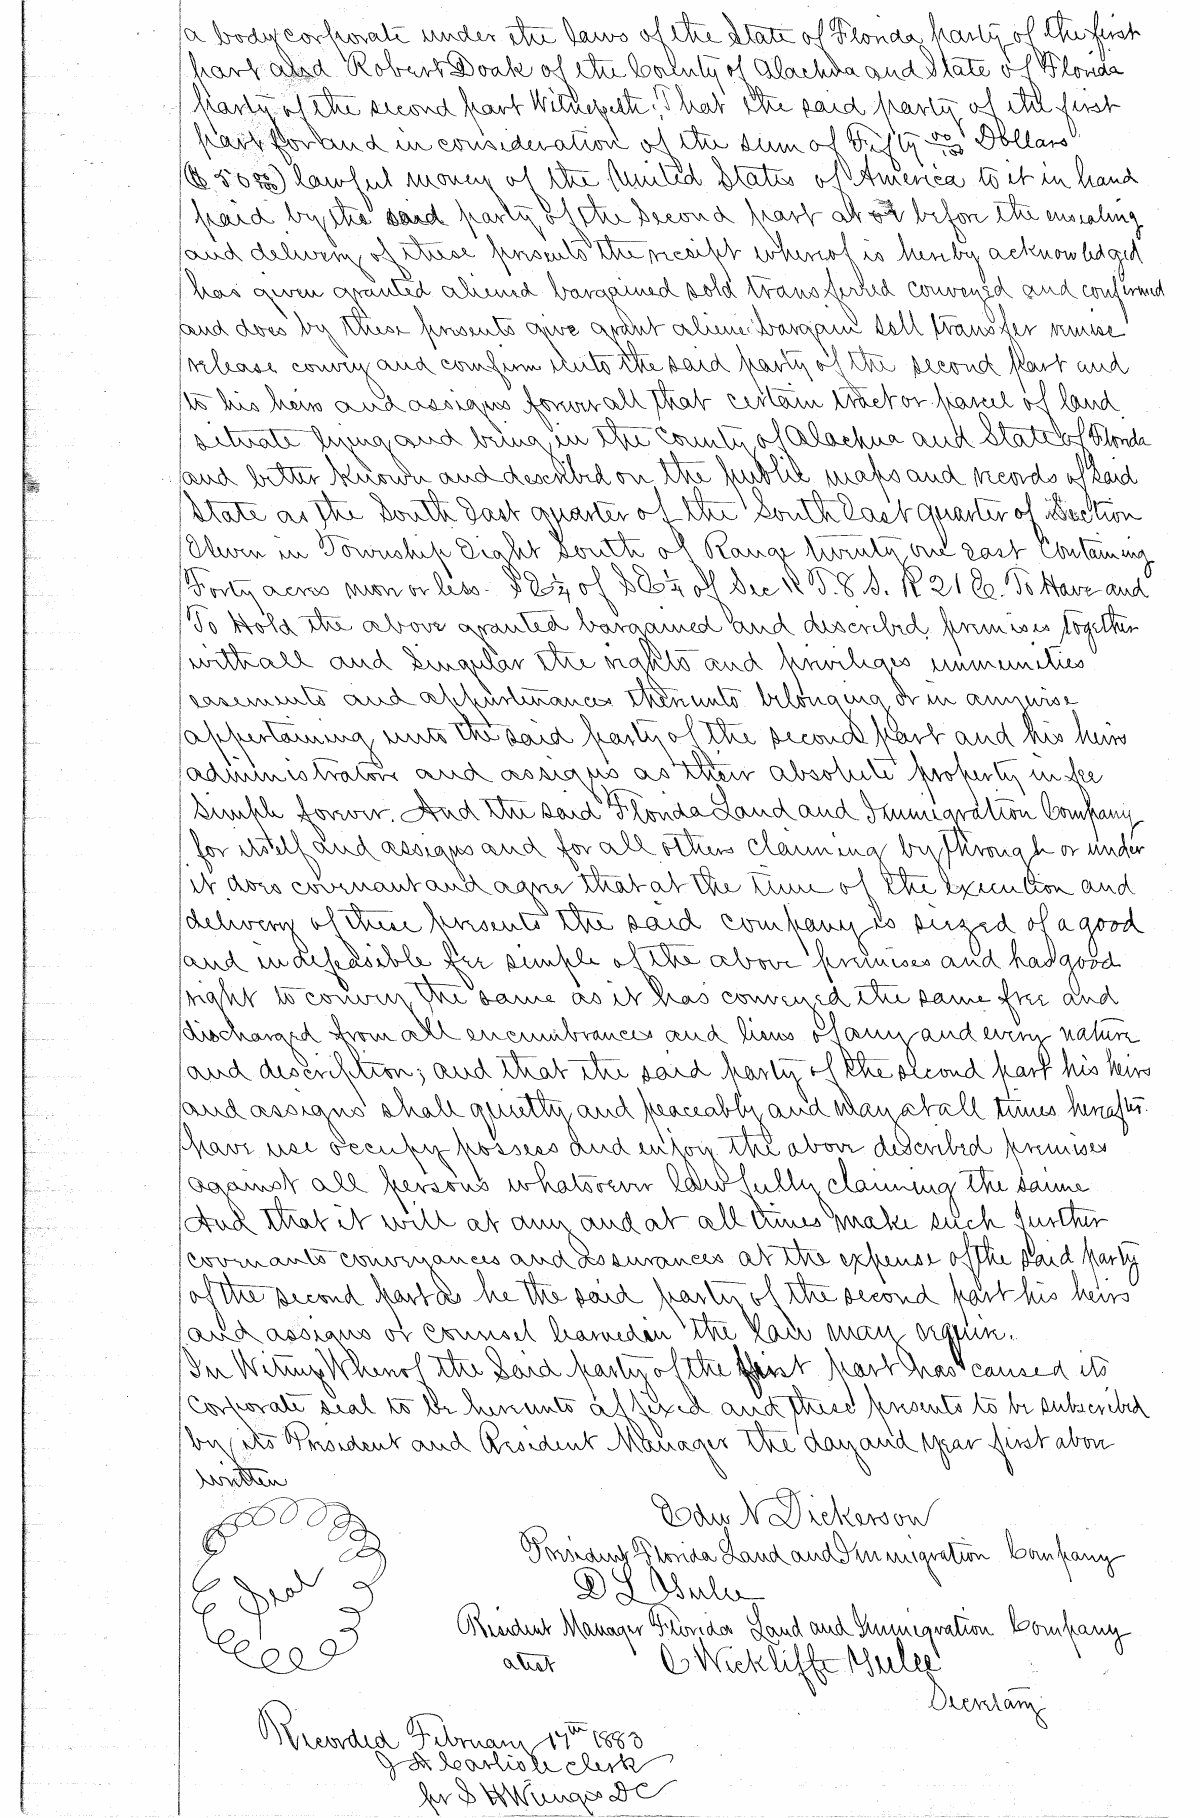 a body corporate under the laws of the State of Florida party of the first
part and Robert Doak of the County of Alachua and State of Florida
Party of the second part Witnesseth; That the said party of the first
part for and in consideration of the sum of Fifty 00/100 Dollars
($50 00/100) lawful money of the United States of America to it in hand
paid by the said party of the Second part at or before the ensealing
and delivery of these presents the receipt whereof is hereby acknowledged
has given granted aliened bargained sold transferred conveyed and confirmed
and does by these presents give grant aliene bargain sell transfer remise
release convey and comfirm unto the said party of the second part and
to his heirs and assigns forever all that certain tract or parcel of land
situate lying and being in the County of Alachua and State of Florida
and better known and described on the public maps and records of said
State as the South East quarter of the South East quarter of Section
Eleven in Township Eight South of Range twenty one east Containing
Forty acres more or less. S E ¼ of S E ¼ of Sec 11 T. 8 S. R 21 E. To Have and
To Hold the above granted bargained and described premises together
with all and Singular the rights and priviliges immunities
easements and appurtenances thereunto belonging or in anywise
appertaining unto the said party of the second part and his heirs
administrators and assigns as their absolute property in fee
simple forever. And the said Florida Land and Immigration Company
for itself and assigns and for all others claiming by through or under
it does covenant and agree that at the time of the execution and
delivery of these presents the said company is siezed of a good
and indefeasible fee simple of the above premises and has good
right to convey the same as it has conveyed the same free and
discharged from all encumbrances and liens of any and every nature
and description; and that the said party of the second part his heirs
and assigns shall quietly and peaceably and may at all times hereafter
have use occupy possess and enjoy the above described premises
against all persons whatsoever lawfully claiming the same
And that it will at any and at all times make such further
covenants conveyances and assurances at the expense of the said party
of the second part as he the said party of the second part his heirs
and assigns or counsel learned in the law may require.
In Witness Whereof the Said party of the first part has caused its
Corporate seal to be hereunto affixed and these presents to be subscribed
by its President and Resident Manager the day and year first above
written
Edw N Dickerson
President Florida Land and Immigration Company
Seal
D L Yulee
Resident Manager Florida Land and Immigration Company
attest C Wickliffe Yulee
Secretary
Recorded February 17th 1883
J A Carlisle Clerk
pr S H Wienges DC